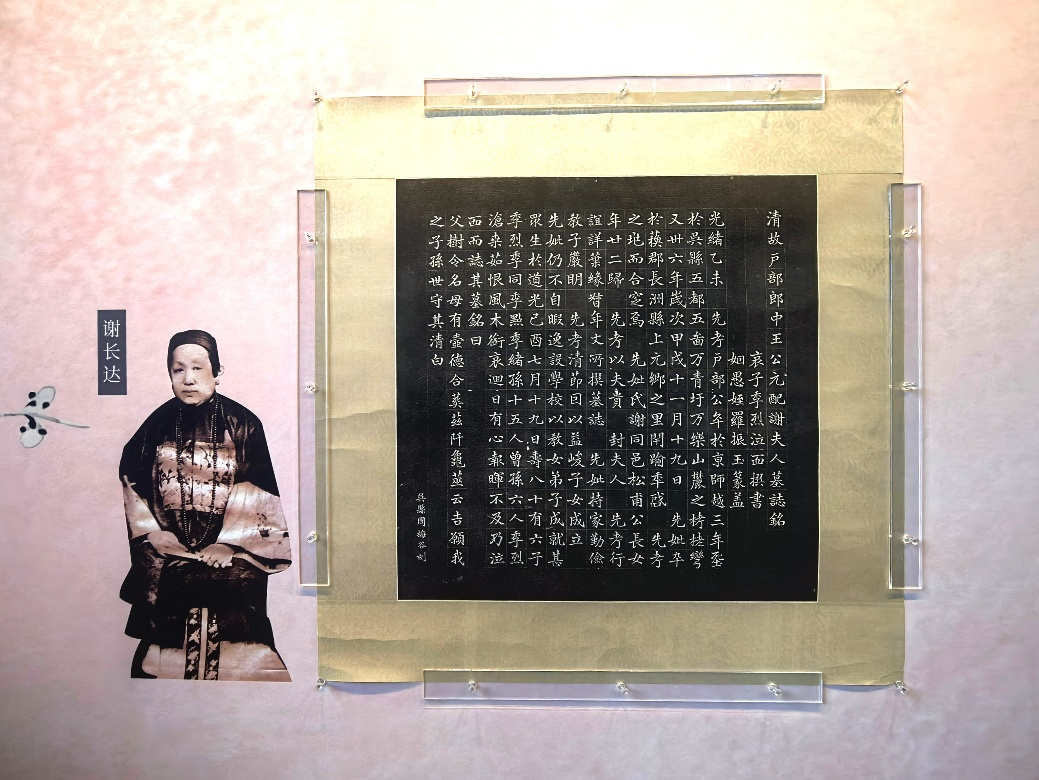 谢长达
清故戶部郎中王公元配謝夫人墓誌銘
哀子季烈泣血撰書
姻愚姪羅振玉篆盖
光緒乙未　先考戶部公卒於京師越三年塟
於吳縣五都五啚万青圩万樂山麓之
又卅六年歲次甲戌十一月十九日　先妣卒
於蘓郡長洲縣上元鄉之里閈踰年啓
之兆而合窆焉　先妣氏謝同邑松甫公長女
年廿二歸　先考以夫貴　封夫人　先考行
誼詳葉緣督年丈所撰墓誌　先妣持家勤儉
教子嚴明　先考清節因以益峻子女成立
先妣仍不自暇逸設學校以教女弟子成就甚
眾生於道光己酉七月十九日壽八十有六子
季烈季同季點季緒孫十五人曾孫六人季烈
滄桑茹恨風木銜哀迴日有心報暉不及乃泣
血而誌其墓銘曰
父樹令名母有壼德合英茲阡龜筮云吉願我
之子孫世守其清白
吳縣周梅谷刻